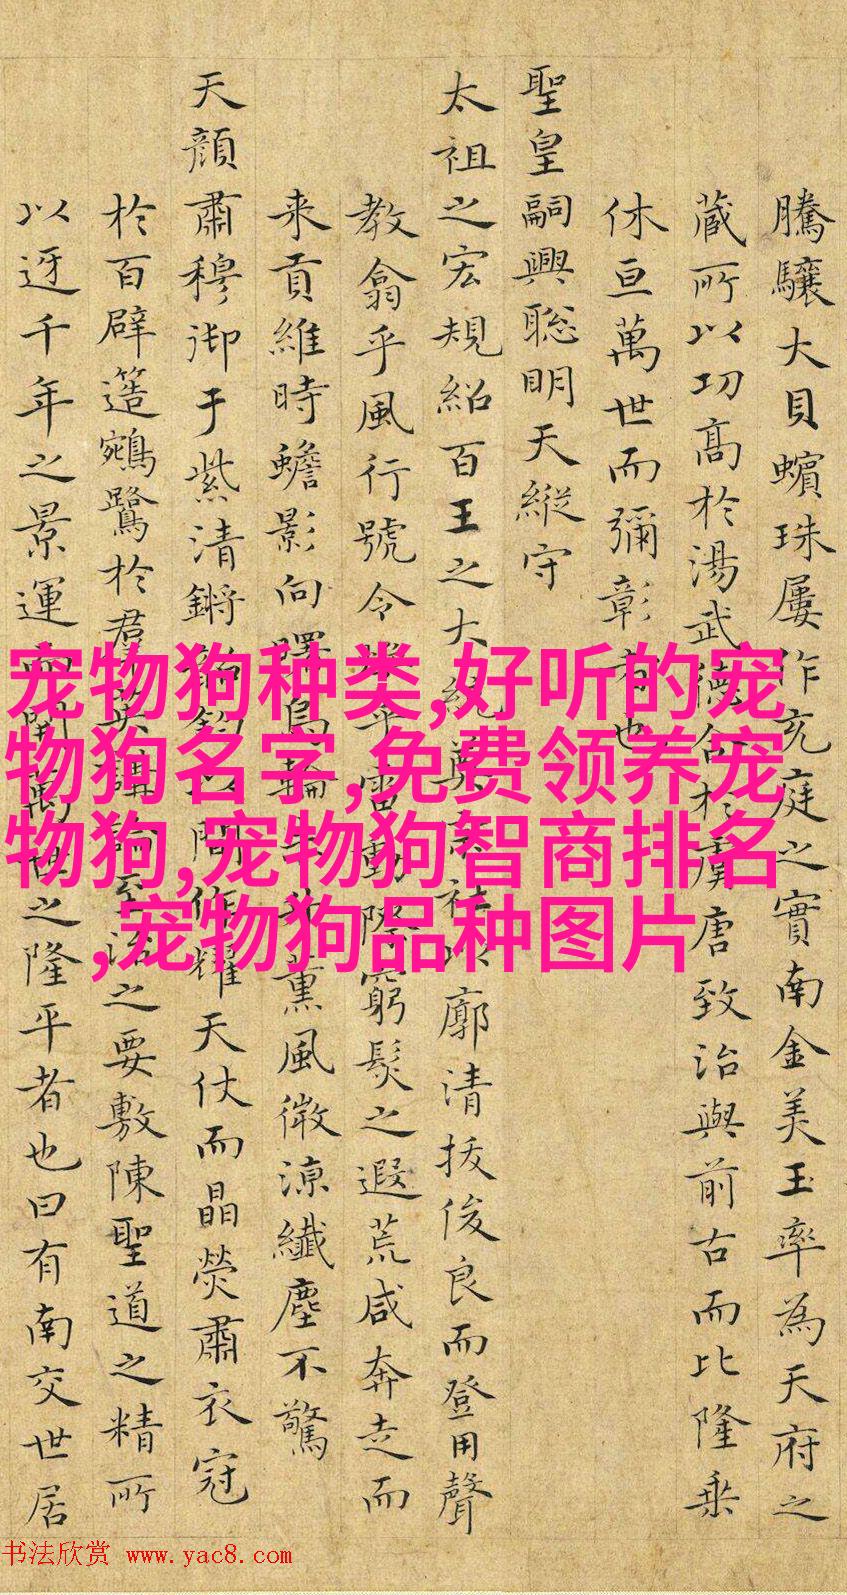 騰驤大貝蠙珠屢作充庭之實南金美玉率為天府之
蔵所以功髙於湯武德合於虞唐致治與前古而比隆乗
休亘萬世而彌彰者也
聖皇嗣興聡明天縦守
太祖之宏規紹百王之大統
廓清拔俊良而登用聲
教翕乎風行號令
乎雷動際窮髮之遐荒咸奔走而
来貢維時蟾影向
躔烏輪
薫風微涼纎塵不驚
天顔肅穆御于紫清鏘
以間作耀天仗而晶熒肅衣冠
於百辟簉鵷鷺於群英講
至治之要敷陳聖道之精所
以迓千年之景運而開萬世之隆平者也曰有南交世居
宠物狗种类,好听的宠
物狗名字,免费领养宠
物狗,宠物狗智商排名
,宠物狗品种图片
书法欣赏 www.yac8.com